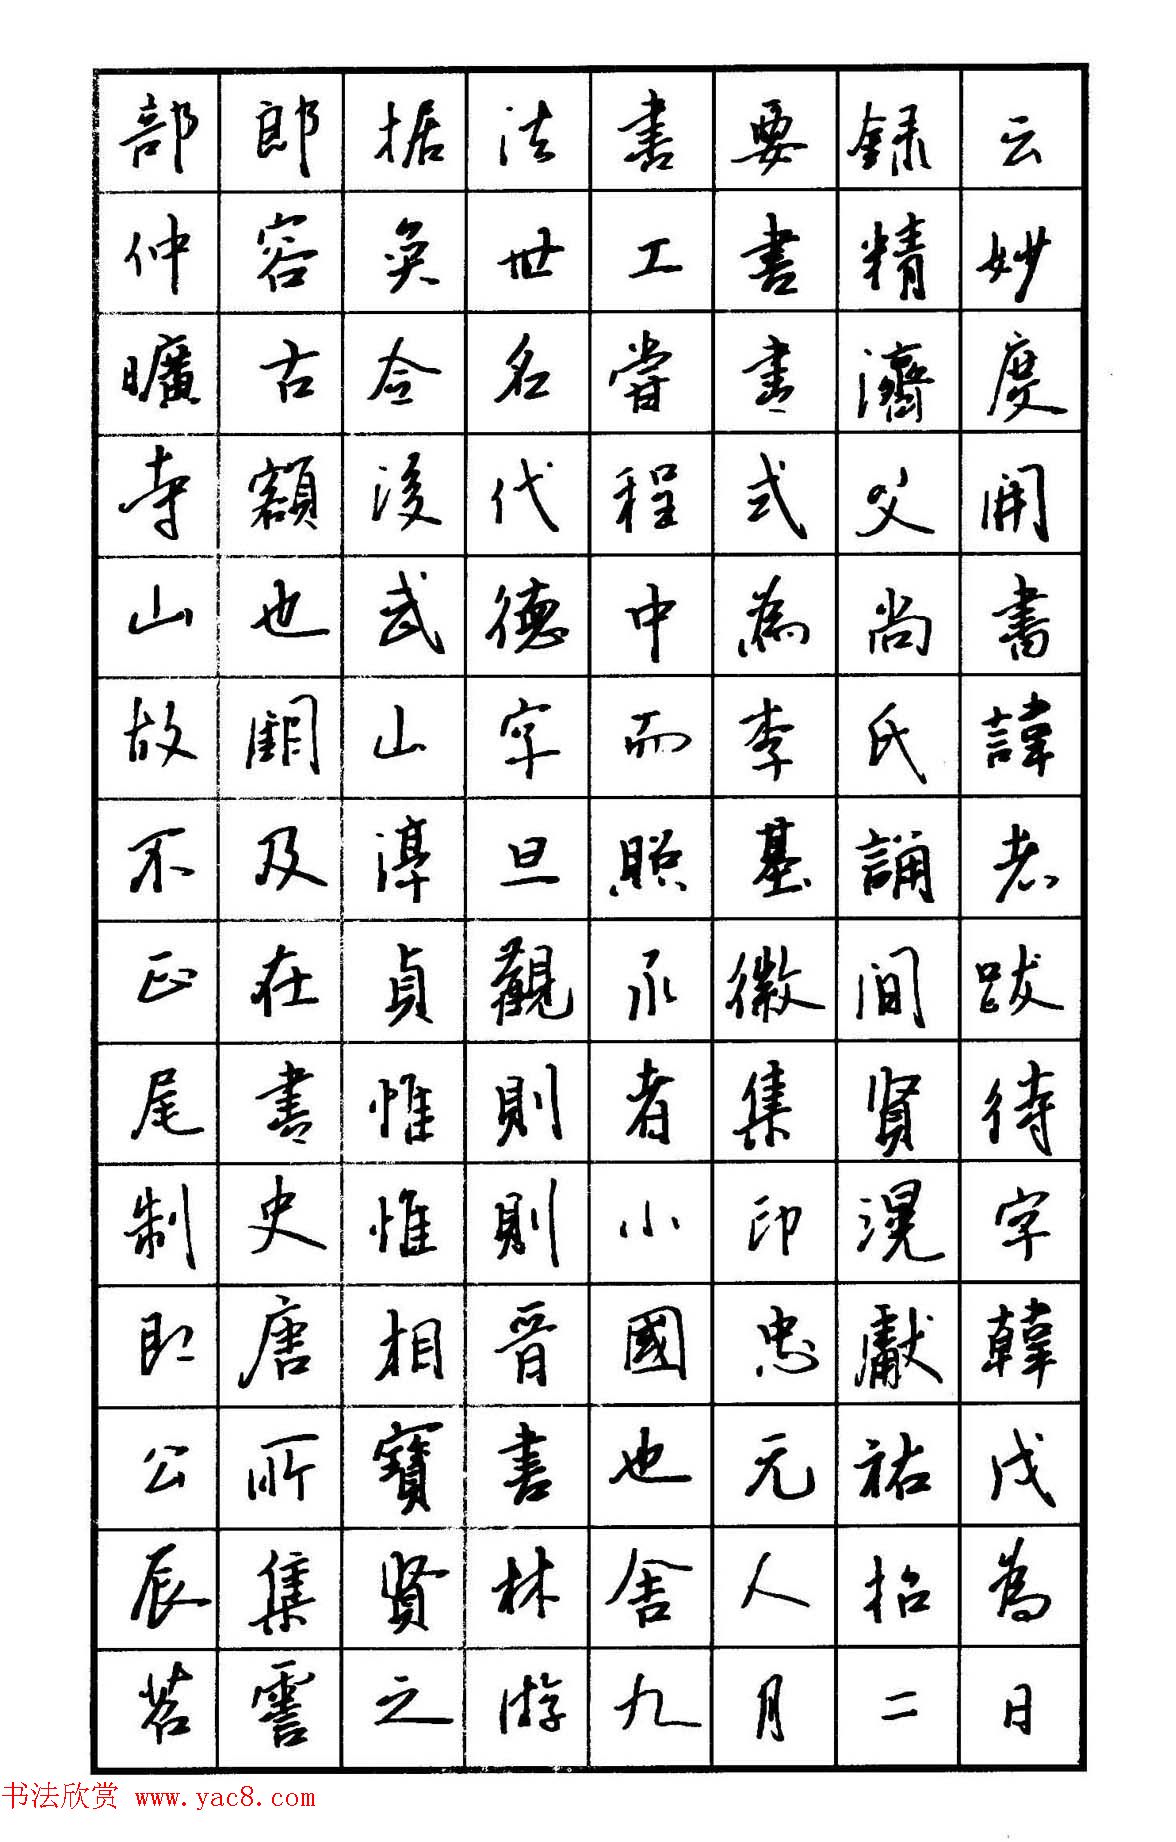 部郎据法書要錄云
仲容奕世工書精妙
曠古令名嘗書濟度
寺額後代程式父開
山也武德中為尚書
故闕山字而李氏諱
不及淳旦照基誦者
正在貞觀永徽間跋
尾書惟則者集賢待
制史惟則小印滉字
即唐相晉國忠獻韓
公所寶書也元祐戊
辰集賢林舍人招為
苕霅之游九月二日
书法欣赏 www.yac8.com